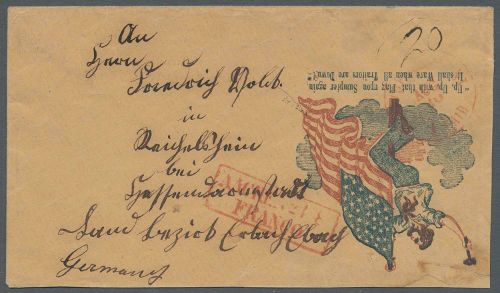 An
Herrn
Friedrich Volk.
in
Reichelshein
bei
Hessendarmstadt
Land bezirk Erbach
Germany
20
"Up, Up, with that Flag, upon Sumpter again
It shall Wave when all Traitors are Down!"
AACHEN
FRANCO